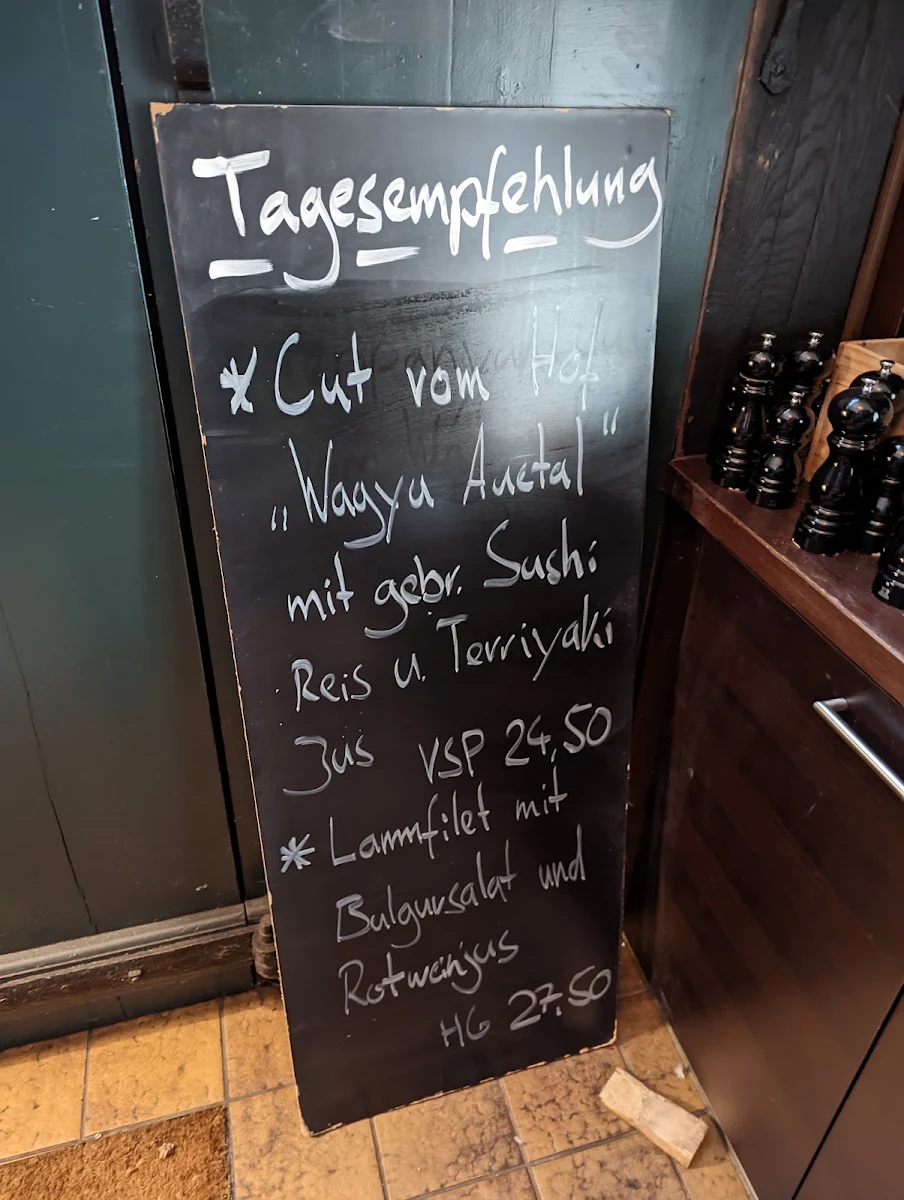 Tagesempfehlung
* Cut vom Hof
„Wagyu Auetal"
mit gebr. Sushi
Reis u. Terriyaki
Jus VSP 24,50
* Lammfilet mit
Bulgursalat und
Rotweinjus
HG 27,50